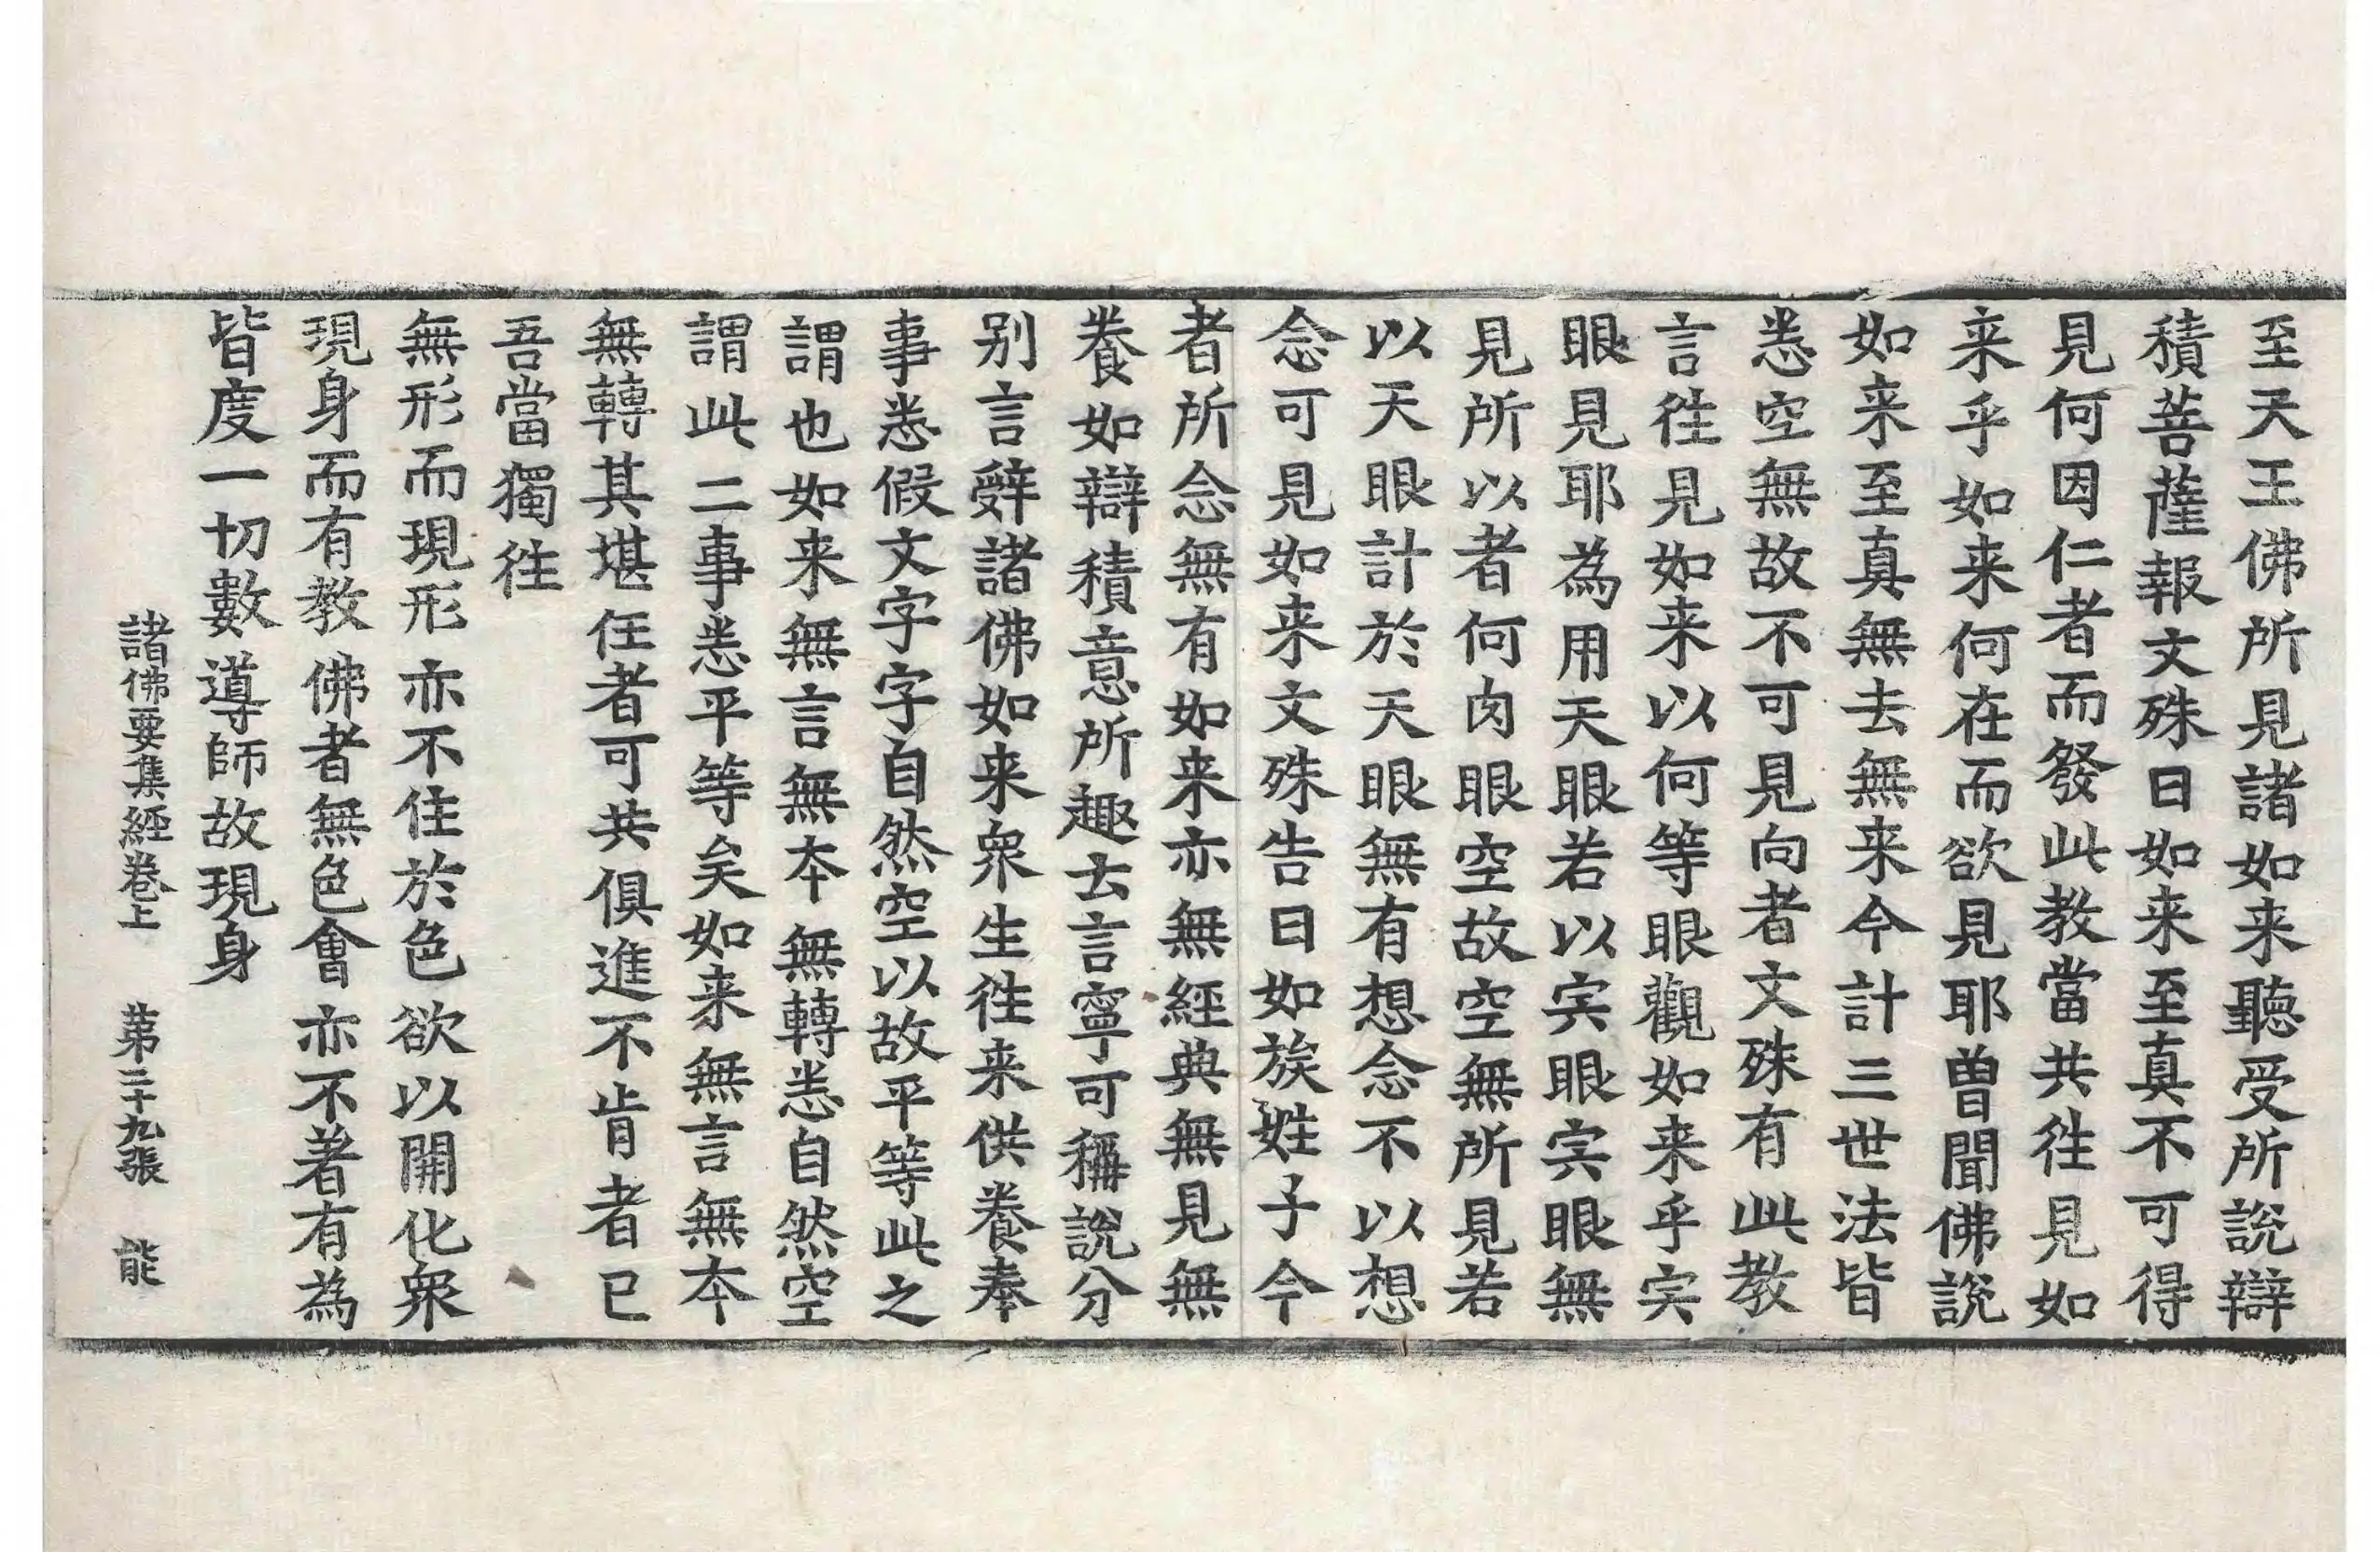 至天王佛所見諸如来聽受所說辯
積菩薩報文殊曰如来至真不可得
見何因仁者而發此教當共往見如
来乎如来何在而欲見耶曾聞佛說
如来至真無去無来今計三世法皆
悉空無故不可見向者文殊有此教
言往見如来以何等眼觀如来乎宍
眼見耶為用天眼若以宍眼宍眼無
見所以者何肉眼空故空無所見若
以天眼計於天眼無有想念不以想
念可見如来文殊告曰如族姓子今
者所念無有如来亦無經典無見無
養如辯積意所趣去言寧可稱說分
别言辭諸佛如来衆生往来供養奉
事悉假文字字自然空以故平等此之
謂也如来無言無本無轉悉自然空
謂此二事悉平等矣如来無言無本
無轉其堪任者可共俱進不肯者已
吾當獨往
無形而現形 亦不住於色 欲以開化衆
現身而有教 佛者無色會 亦不著有為
皆度一切數 導師故現身
諸佛要集經卷上 第二十九張 能